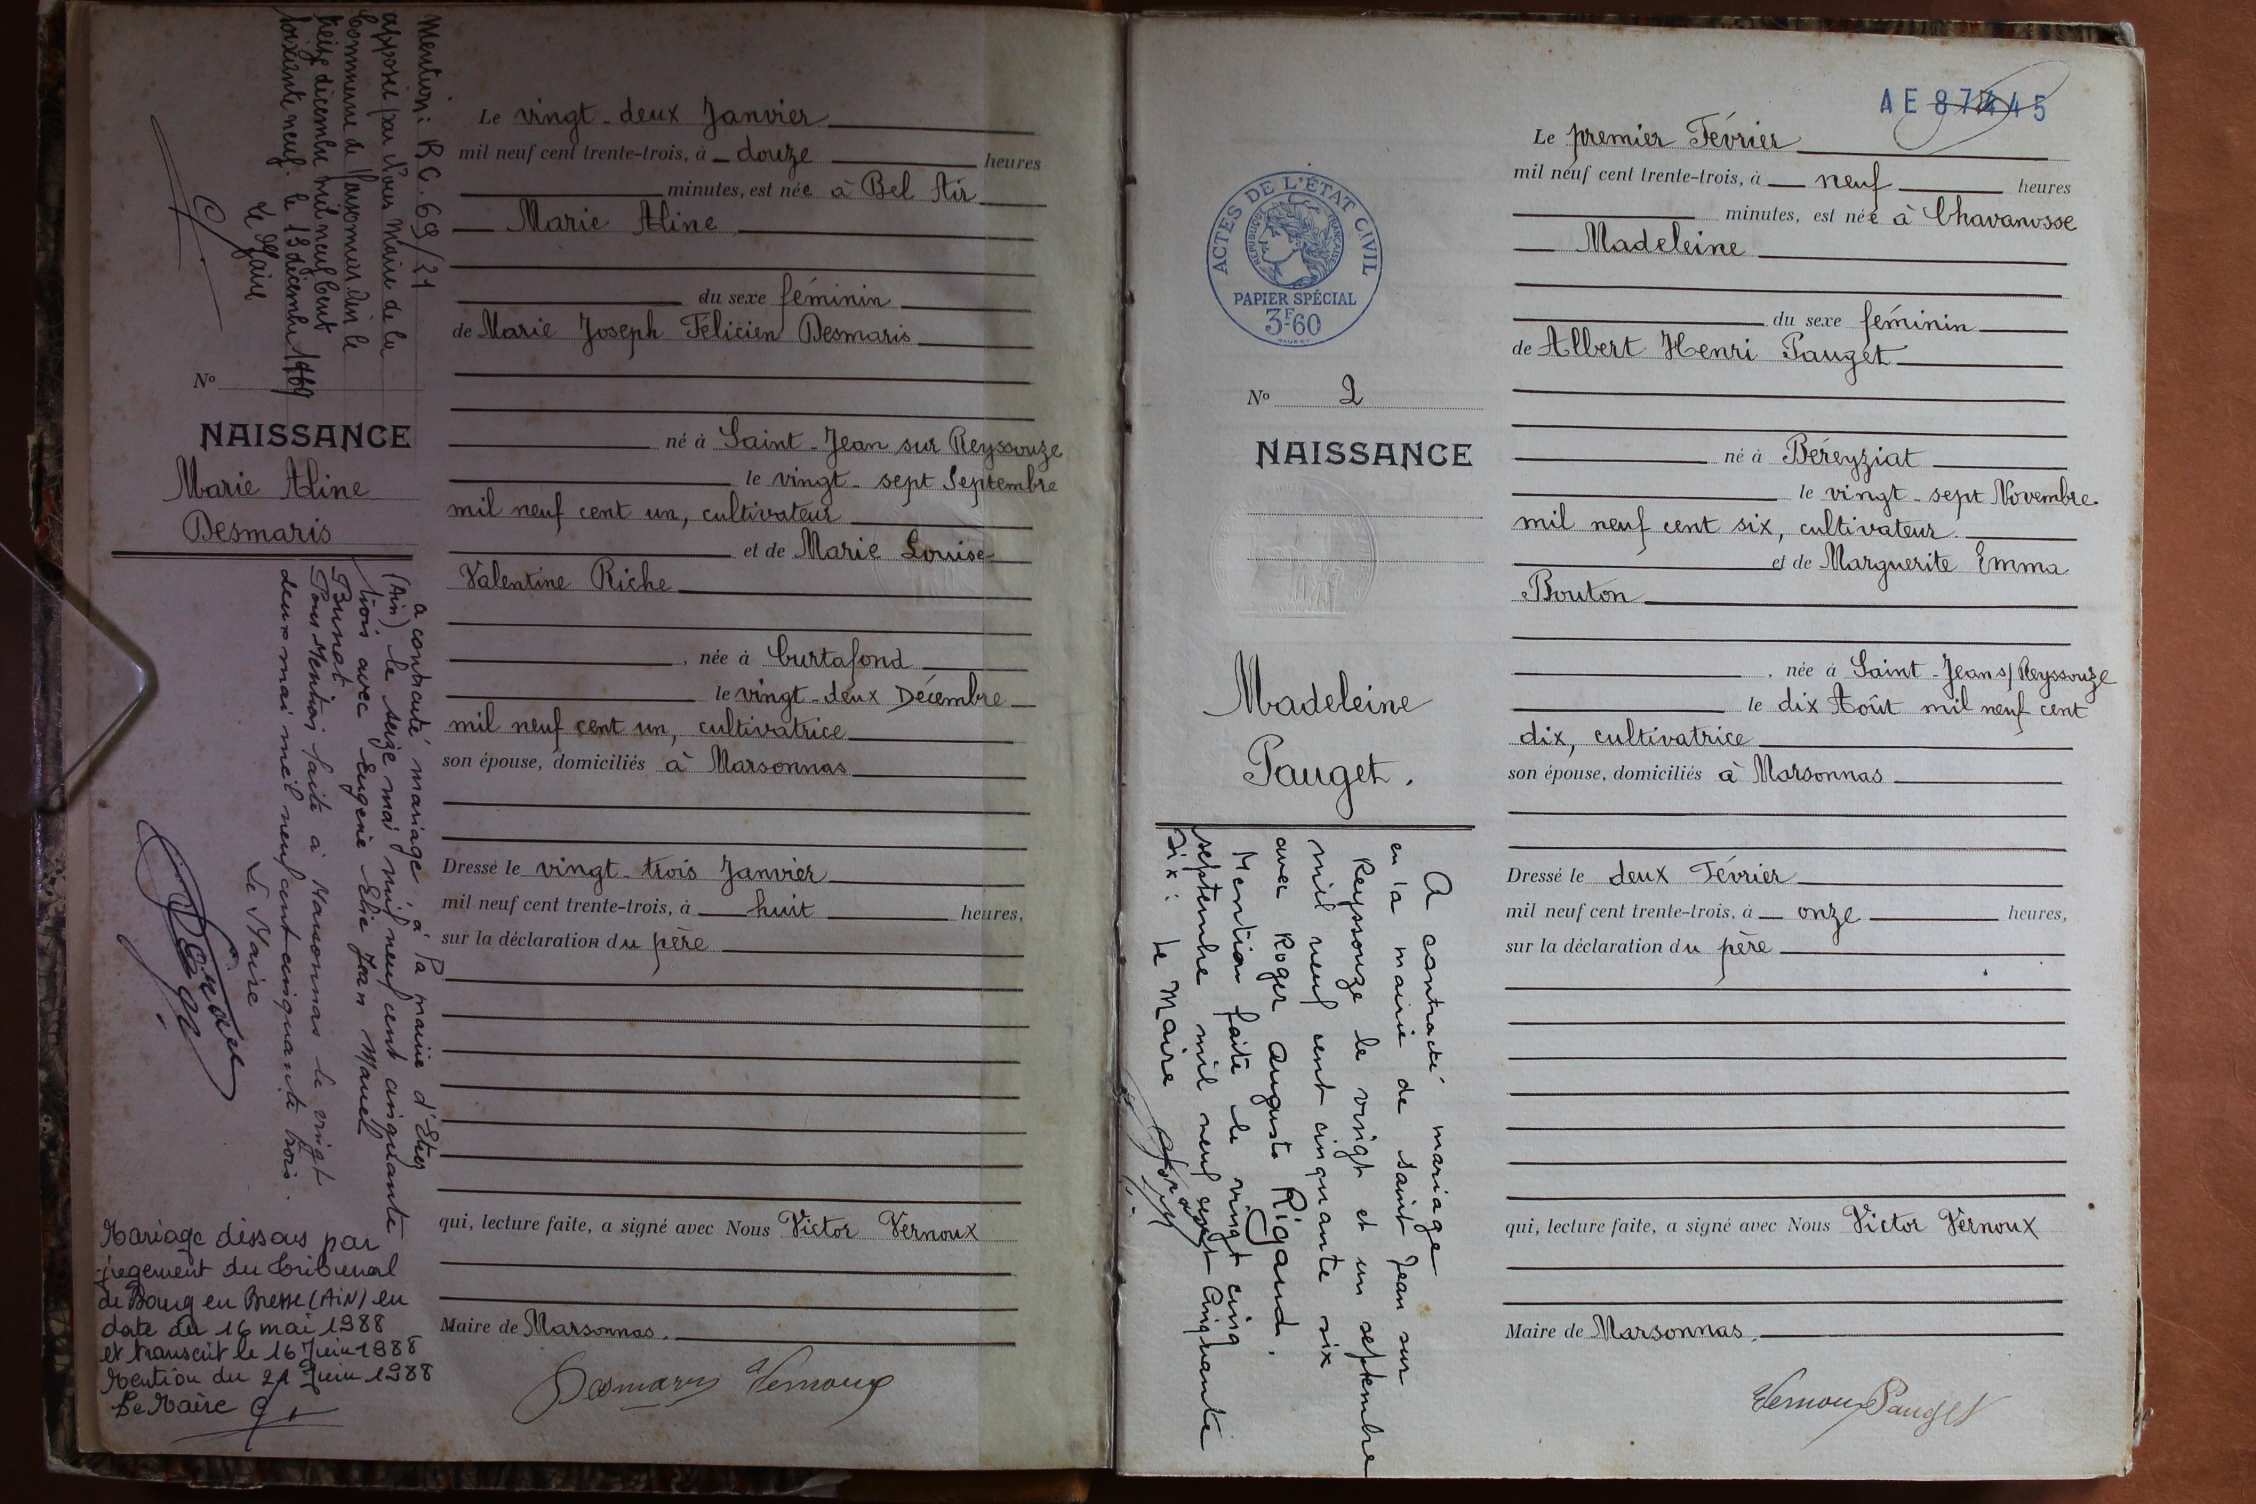 Mention: R.C. 69/21
apposée par Nous Maire de la
Commune de Marsonnas Ain le
treize décembre mil neuf cent
soixante neuf. le 13 décembre 1969
Le Maire
Nº
NAISSANCE
Marie Aline
Desmaris
a contracté mariage, à la mairie d'Etrez
(Ain), le seize mai mil neuf cent cinquante
trois avec Eugène Elie Jean Manuel
Brunot
Pour Mention faite à Marsonnas le vingt
deux mai mil neuf cent cinquante trois.
Le Maire
Mariage dissous par
jugement du Tribunal
de Bourg en Bresse (AiN) en
date du 16 mai 1988
et transcrit le 16 Juin 1988
Mention du 21 Juin 1988
Le Maire
Le vingt-deux Janvier
mil neuf cent trente-trois, à douze heures
minutes, est née à Bel Air
Marie Aline
du sexe féminin
de Marie Joseph Félicien Desmaris
né à Saint-Jean sur Reyssouze
le vingt-sept Septembre
mil neuf cent un, cultivateur
et de Marie Louise
Valentine Riche
, née à Curtafond
le vingt-deux Décembre
mil neuf cent un, cultivatrice
son épouse, domiciliés à Marsonnas
Dressé le vingt-trois Janvier
mil neuf cent trente-trois, à huit heures,
sur la déclaration du père
qui, lecture faite, a signé avec Nous Victor Vernoux
Maire de Marsonnas.
Desmaris Vernoux
AE 87445
ACTES DE L'ÉTAT CIVIL
RÉPUBLIQUE FRANÇAISE
PAPIER SPÉCIAL
3F60
Nº 2
NAISSANCE
Madeleine
Pauget.
A contracté mariage
en la mairie de Saint Jean sur
Reyssouze le vingt et un septembre
mil neuf cent cinquante six
avec Roger Auguste Rigaud.
Mention faite le vingt cinq
septembre mil neuf cent cinquante
six: Le Maire
Le premier Février
mil neuf cent trente-trois, à neuf heures
minutes, est née à Chavanosse
Madeleine
du sexe féminin
de Albert Henri Pauget
né à Béréyziat
le vingt-sept Novembre
mil neuf cent six, cultivateur
et de Marguerite Emma
Bouton
, née à Saint-Jean s/Reyssouze
le dix Août mil neuf cent
dix, cultivatrice
son épouse, domiciliés à Marsonnas
Dressé le deux Février
mil neuf cent trente-trois, à onze heures,
sur la déclaration du père
qui, lecture faite, a signé avec Nous Victor Vernoux
Maire de Marsonnas.
Vernoux Pauget